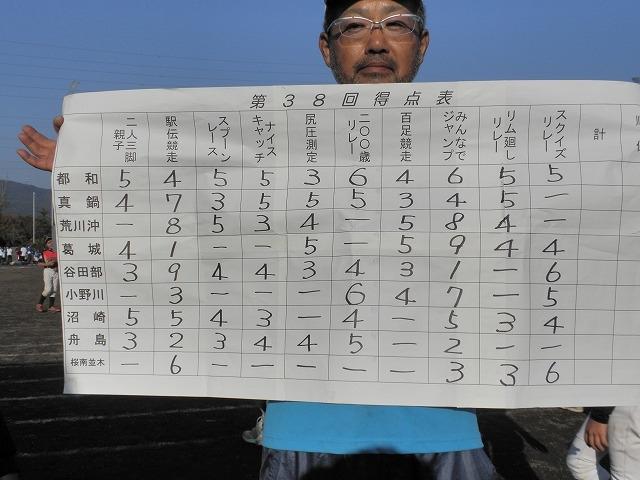 第38回得点表
親子二人三脚 駅伝競走 スプーンレース ナイスキャッチ 尻圧測定 二〇〇歳リレー 百足競走 みんなでジャンプ リム廻しリレー スクイズリレー 計
都和 5 4 5 5 3 6 4 6 5 5
真鍋 4 7 3 5 5 5 3 4 5 —
荒川沖 — 8 5 3 4 — 5 8 4 —
葛城 4 1 — — 5 — 5 9 4 4
谷田部 3 9 4 4 3 4 3 1 — 6
小野川 — 3 — — — 6 4 7 — 5
沼崎 5 5 4 3 — 4 — 5 3 4
舟島 3 2 3 4 4 5 — 2 — —
桜南並木 — 6 — — — — — 3 3 6